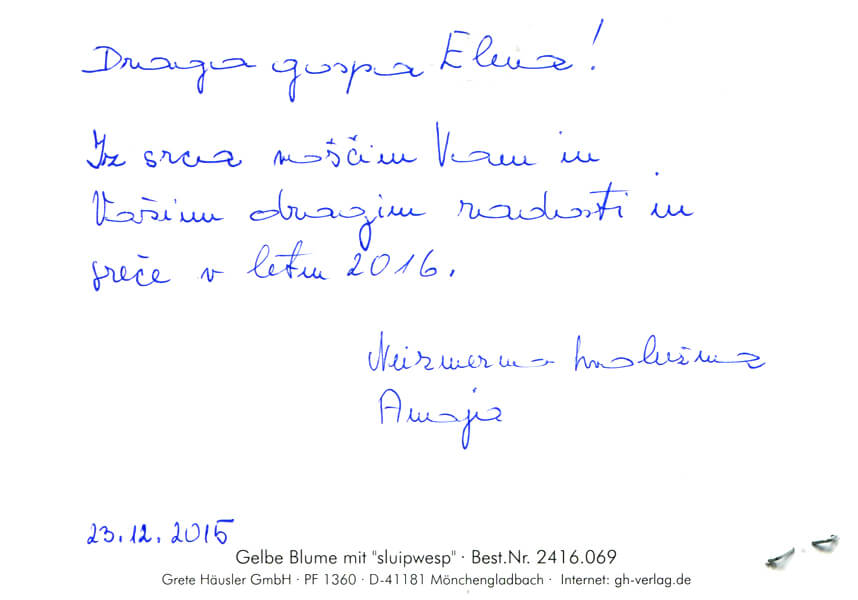 Draga gospa Elena!
Iz srca voščim Vam in
Vašim dragim radosti in
sreče v letu 2016.
Neizmerno hvaležna
Amaja
23.12.2015
Gelbe Blume mit "sluipwesp" · Best.Nr. 2416.069
Grete Häusler GmbH · PF 1360 · D-41181 Mönchengladbach · Internet: gh-verlag.de